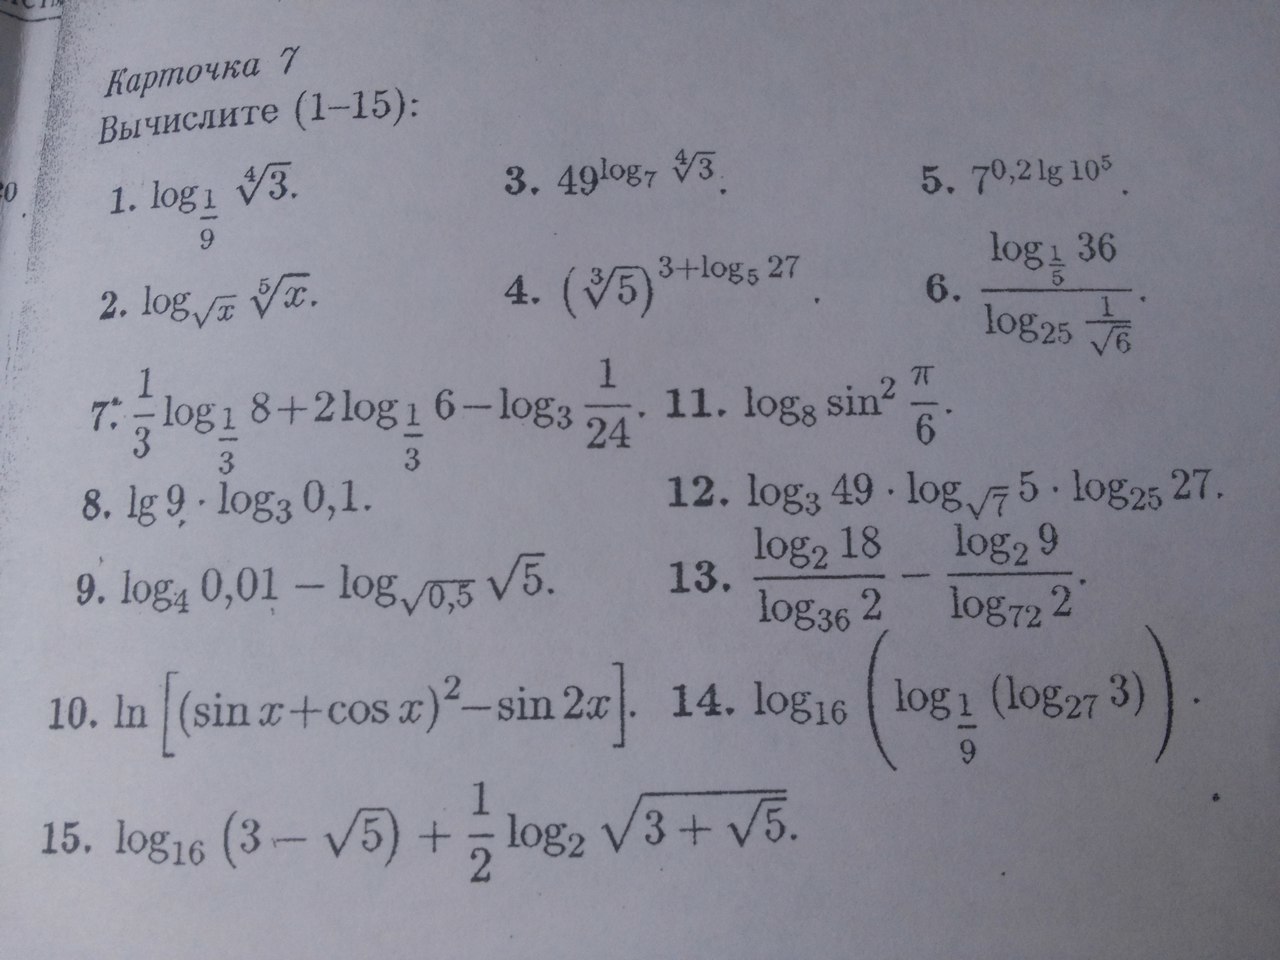 Карточка 7
Вычислите (1–15):
1. log_{1/9} ∜3.
3. 49^{log_7 ∜3}.
5. 7^{0,2 lg 10^5}.
2. log_{√x} ⁵√x.
4. (∛5)^{3+log_5 27}.
6. \frac{log_{1/5} 36}{log_{25} \frac{1}{√6}}.
7. \frac{1}{3} log_{1/3} 8 + 2 log_{1/3} 6 − log_3 \frac{1}{24}.
11. log_8 sin² \frac{π}{6}.
8. lg 9 · log_3 0,1.
12. log_3 49 · log_{√7} 5 · log_{25} 27.
9. log_4 0,01 − log_{√0,5} √5.
13. \frac{log_2 18}{log_{36} 2} − \frac{log_2 9}{log_{72} 2}.
10. ln [(sin x + cos x)² − sin 2x].
14. log_{16} (log_{1/9} (log_{27} 3)).
15. log_{16} (3 − √5) + \frac{1}{2} log_2 √(3 + √5).